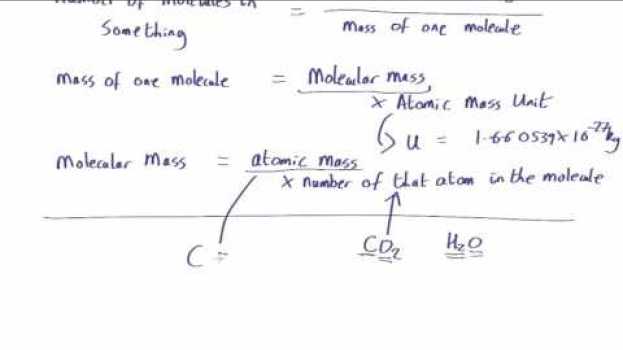 Something = mass of one molecule
mass of one molecule = Molecular mass
x Atomic Mass Unit
u = 1.660539x10⁻²⁷kg
Molecular Mass = atomic mass
x number of that atom in the molecule
C = CO₂ H₂O